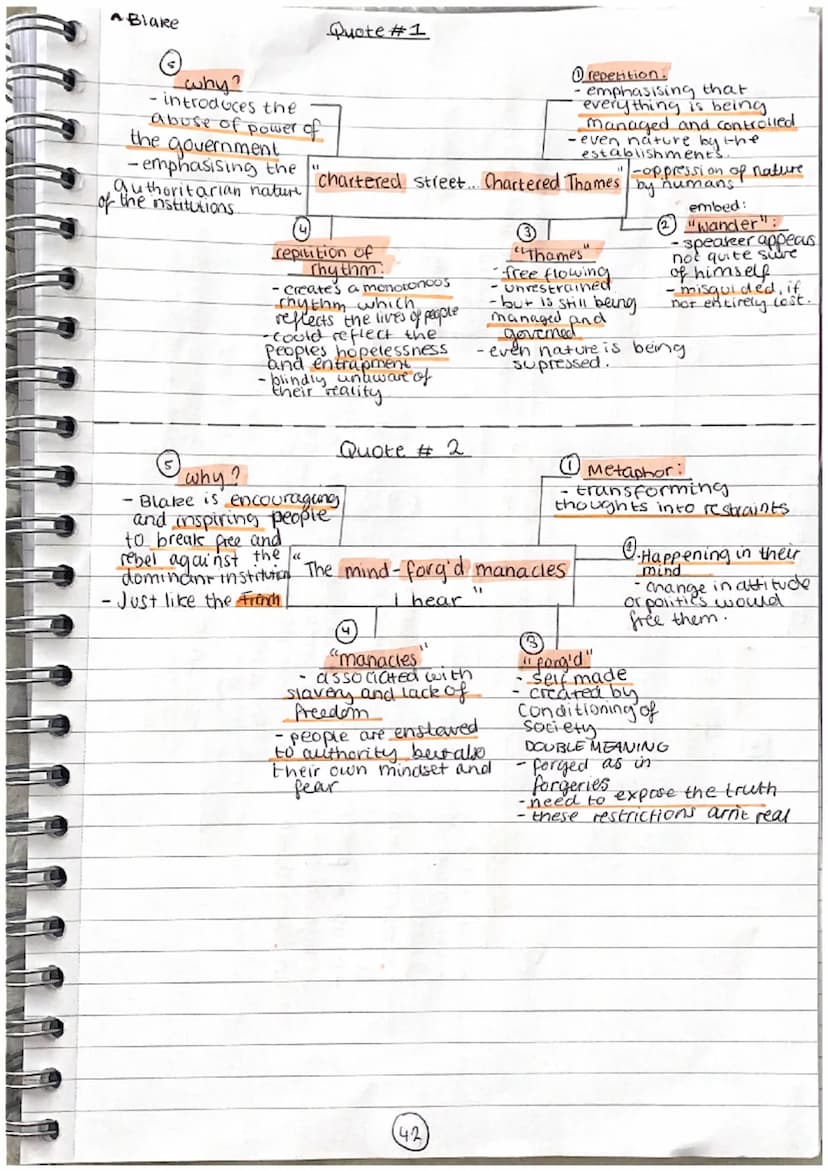 ^ Blake
Quote #1
⑤
why?
- introduces the
abuse of power of
the government
- emphasising the
authoritarian nature
of the institutions
① repetition:
- emphasising that
everything is being
managed and controlled
- even nature by the
establishments.
- oppression of nature
by humans
"Chartered street... Chartered Thames"
embed:
② "wander":
- speaker appears
not quite sure
of himself
- misguided, if
not entirely lost.
③
"Thames"
- free flowing
- unrestrained
- but is still being
managed and
governed
- even nature is being
supressed.
④
repitition of
rhythm:
- creates a monotonous
rhythm which
reflects the lives of people
- could reflect the
peoples hopelessness
and entrapment
- blindly unaware of
their reality
Quote # 2
⑤
why?
- Blake is encouraging
and inspiring people
to break free and
rebel against the
dominant institution
- Just like the French
① Metaphor:
- transforming
thoughts into restraints
"The mind-forg'd manacles
I hear"
②. Happening in their
mind
- change in attitude
or politics would
free them.
③
"forg'd"
- self made
- created by
conditioning of
society
DOUBLE MEANING
- forged as in
forgeries
- need to expose the truth
- these restrictions arn't real
④
"manacles"
- associated with
slavery and lack of
freedom
- people are enslaved
to authority but also
their own mindset and
fear
42